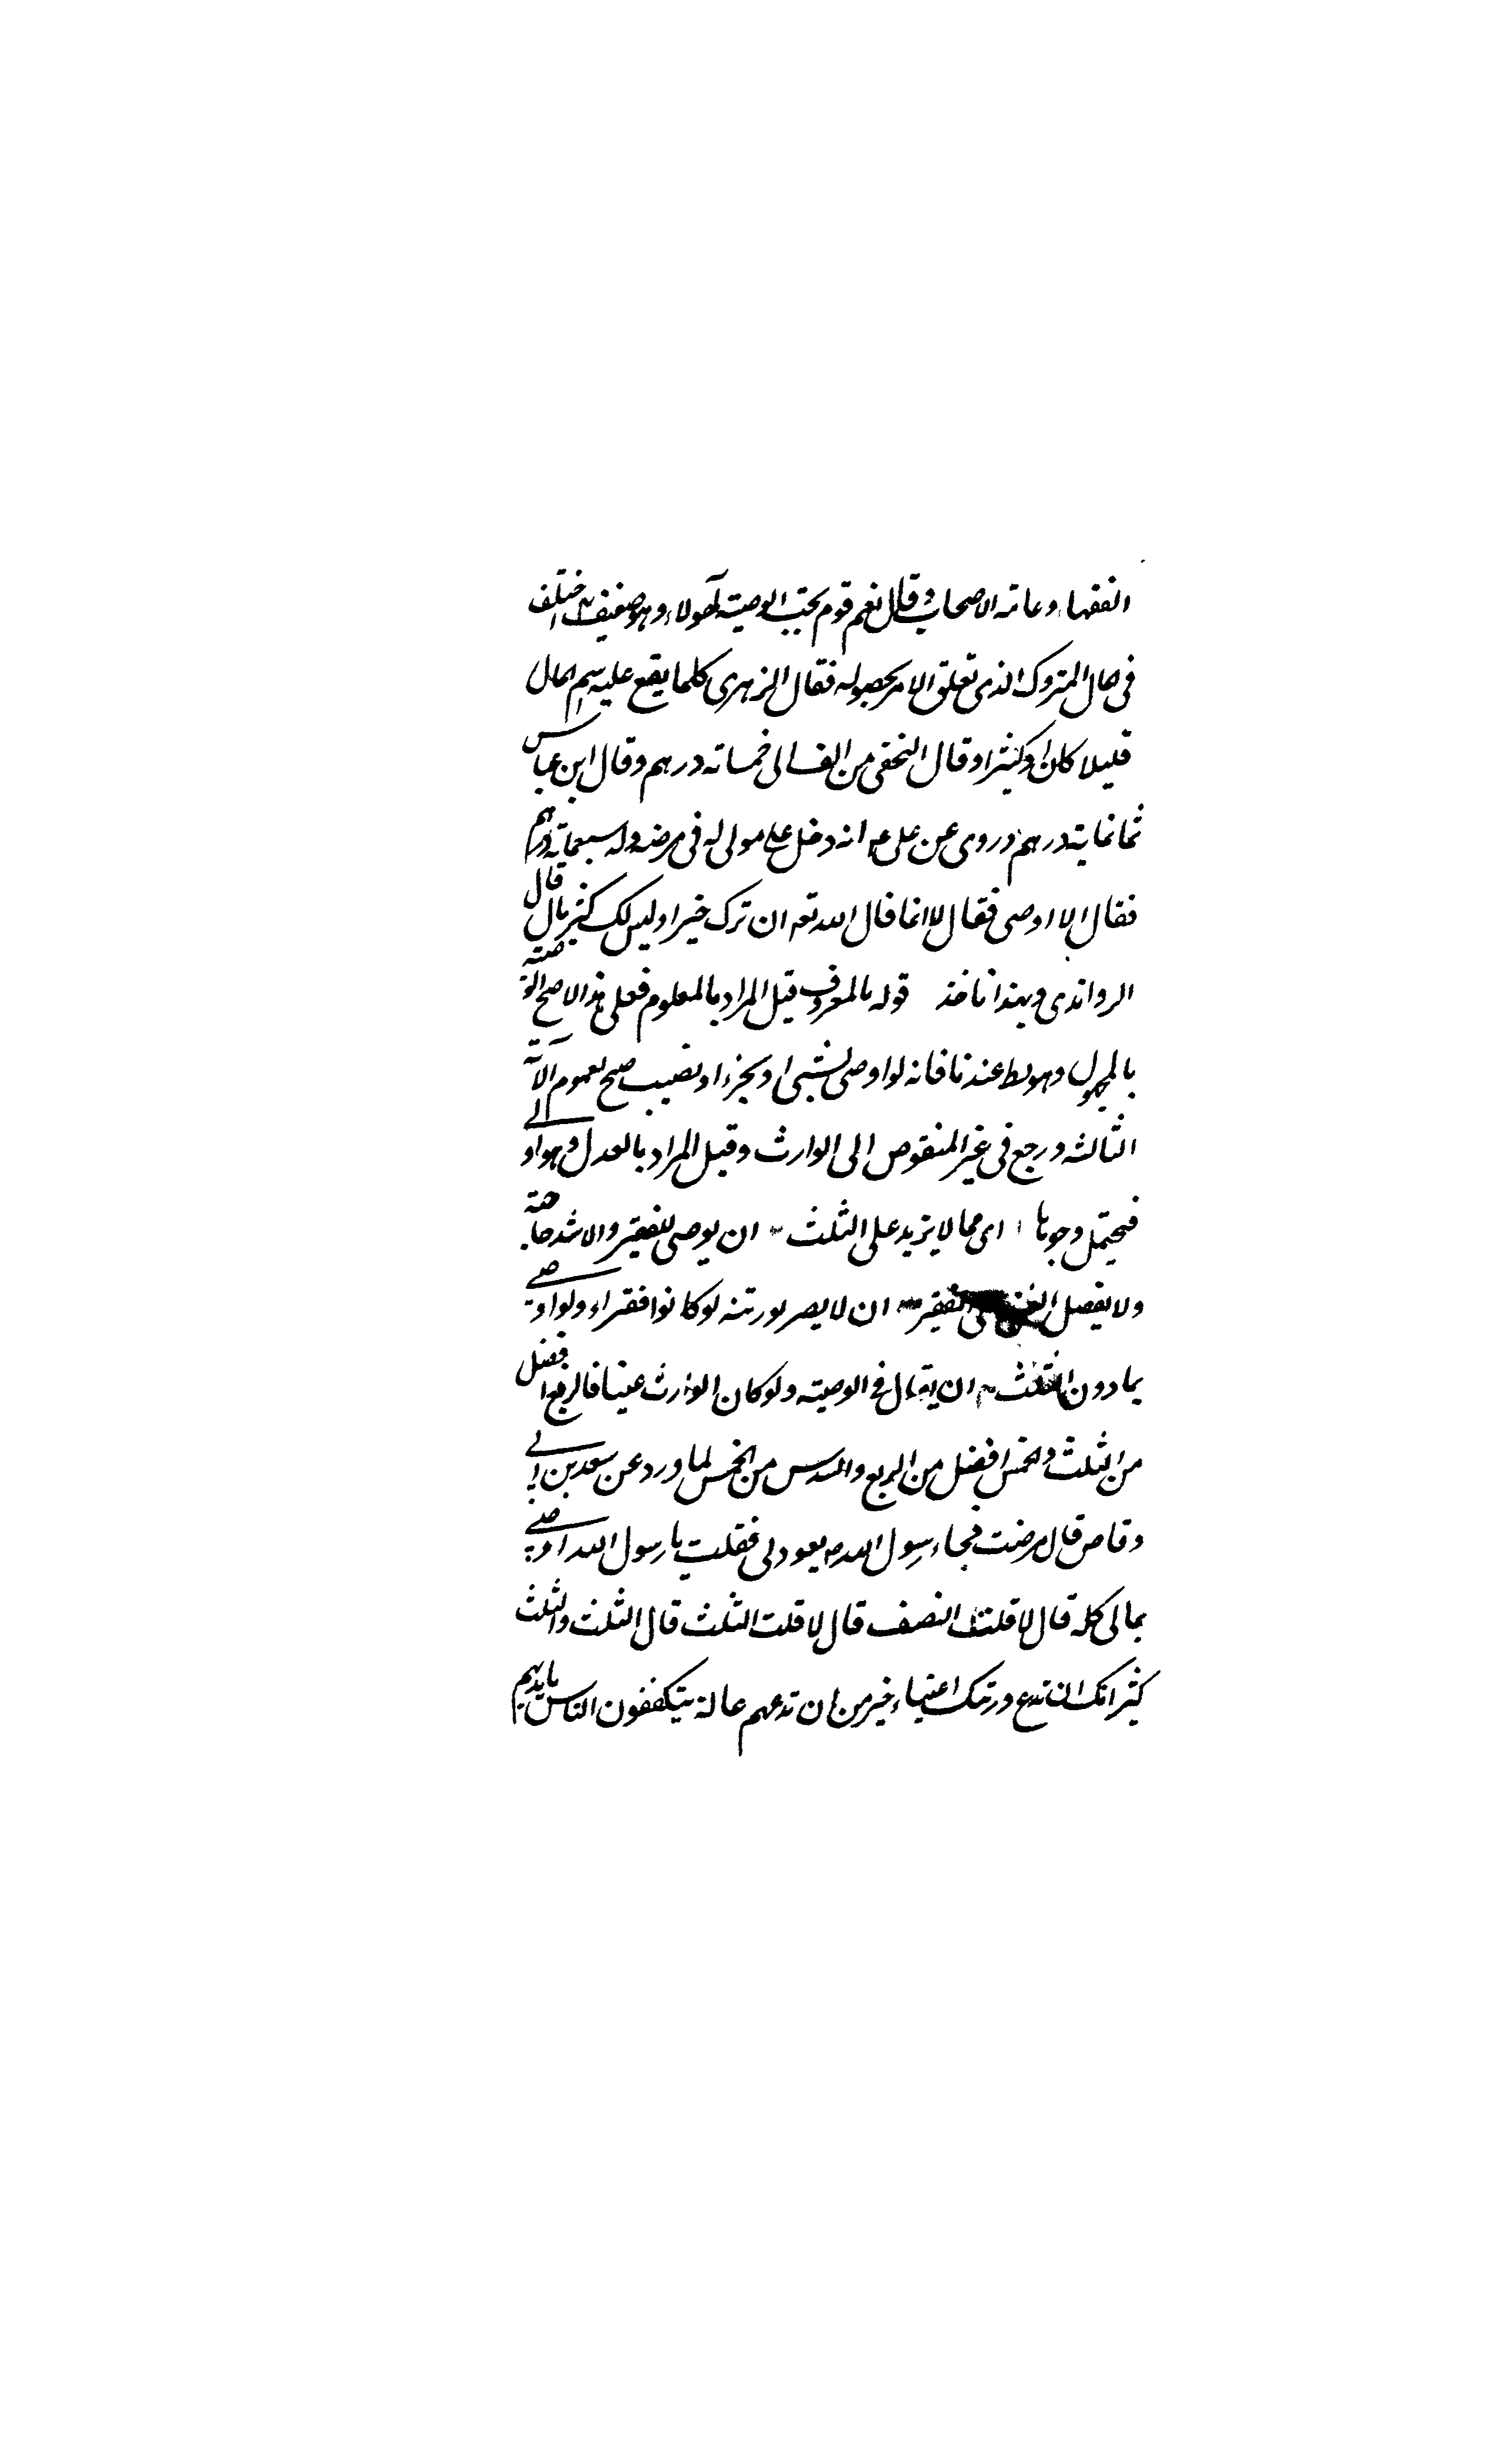 الفقهاء وعامه الاصحاب وقال نعم قوم يجب الوصيته لهولاء وهو ضعيف اختلف
فى المال المتروك الذى تعلق الامر بحصوله فقال الزهرى كلما يقع عليه اسم المال
قليلا كان او كثيرا وقال النخعى من الف الى خمسماته درهم وقال ابن عباس
ثمانمايه درهم وروى عن على عه انه دخل على مولى له فى مرضه وله سبعمايه درهم
فقال الا اوصى فقال لا انما قال الله تعه ان ترك خيرا وليس لك كثير مال قال
الرواندى وبهذا ناخذ قوله بالمعروف قيل المراد بالمعلوم فعلى هذا لا يصح الوصيته
بالمجهول وهو بط عندنا فانه لو اوصى بشيى او بجزء او نصيب صح لعموم الآية
الثالثه ورجع فى غير المنقوص الى الوارث وقيل المراد بالعدل وهو اولى
فيحتمل وجوها ا اى مما لا يزيد على الثلث ب ان يوصى للفقير والاشد حاجته
ولا يفضل الغنى على الفقير ان لا يضر بورثته لو كانوا فقراء ولو اوصى
بما دون الثلث ان يقال فى الوصيته ولو كان الوارث غنيا فالربع افضل
من الثلث والخمس افضل من الربع والسدس من الخمس لما ورد عن سعد بن ابى
وقاص قال مرضت فجاء رسول الله صه يعودنى فقلت يا رسول الله اوصى
بمالى كله قال لا قلت النصف قال لا قلت الثلث قال الثلث والثلث
كثير انك ان تدع ورثتك اغنياء خير من ان تدعهم عالة يتكففون الناس بايديهم